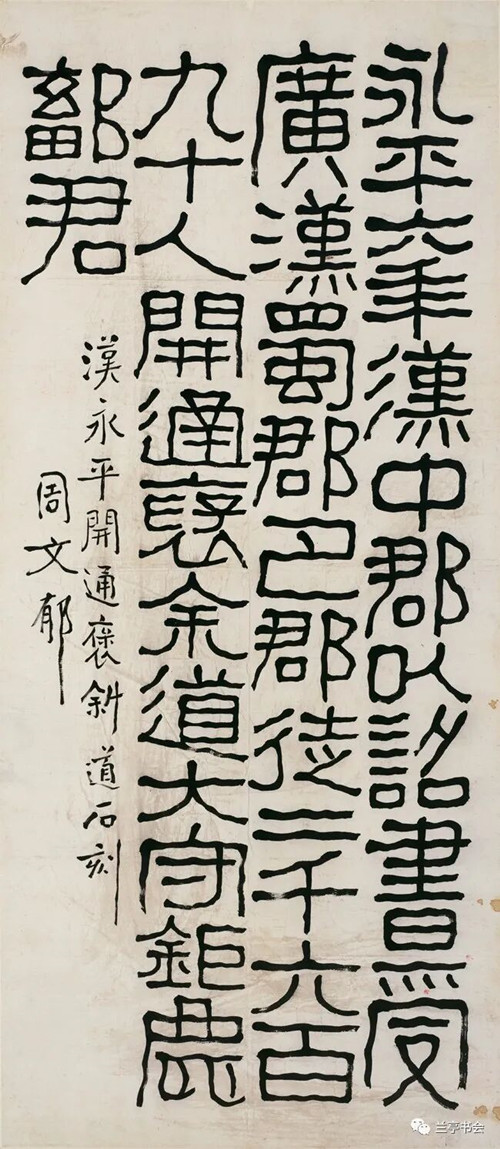 永平六年漢中郡以詔書受
廣漢蜀郡巴郡徒二千六百
九十人開通褒余道大守鉅鹿
鄐君
漢永平開通褒斜道石刻
周文郁
兰亭书会